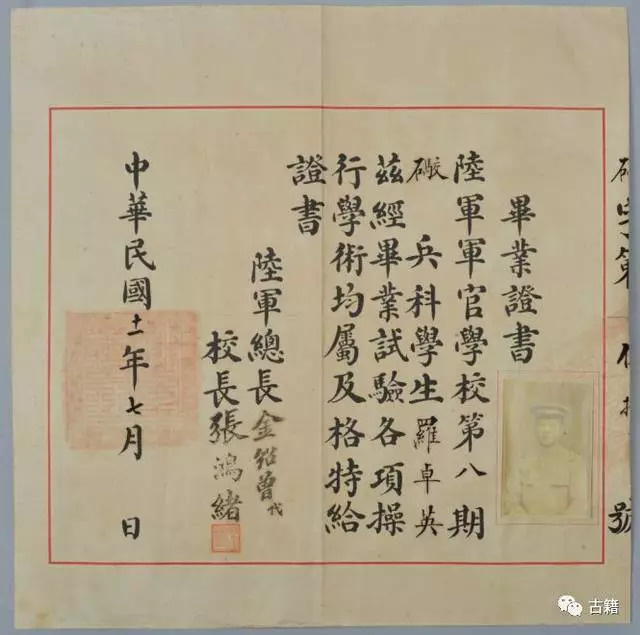 字第 號
畢業證書
陸軍軍官學校第八期
礮 兵科學生羅卓英
茲經畢業試驗各項操
行學術均屬及格特給
證書
陸軍總長金紹曾代
校長張鴻緒
中華民國十一年七月 日
古籍